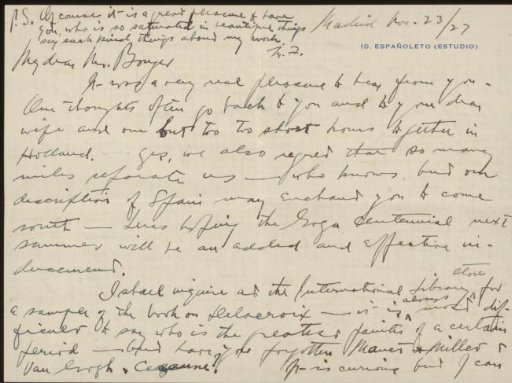 P.S. Of course it is a great pleasure to have
you, who is so saturated in beautiful things
say such kind things about my work.
Madrid Nov. 23/27
10. ESPAÑOLETO (ESTUDIO)
My dear Mr. Bouyer
It was a very real pleasure to hear from you.
Our thoughts often go back to you and to your dear
wife and our but too too short hours together in
Holland. Yes, we also regret that so many
miles separate us — who knows, but our
description of Spain may enchant you to come
south — here's hoping the Goya Centennial next
summer will be an added and effective in-
ducement.
I shall inquire at the International Library store for
a sample of the book on Delacroix — it is always most dif-
ficult to say who is the greatest painter of a certain
period — but have you forgotten Manet & Millet &
Van Gogh & Cezanne. It is curious but I can